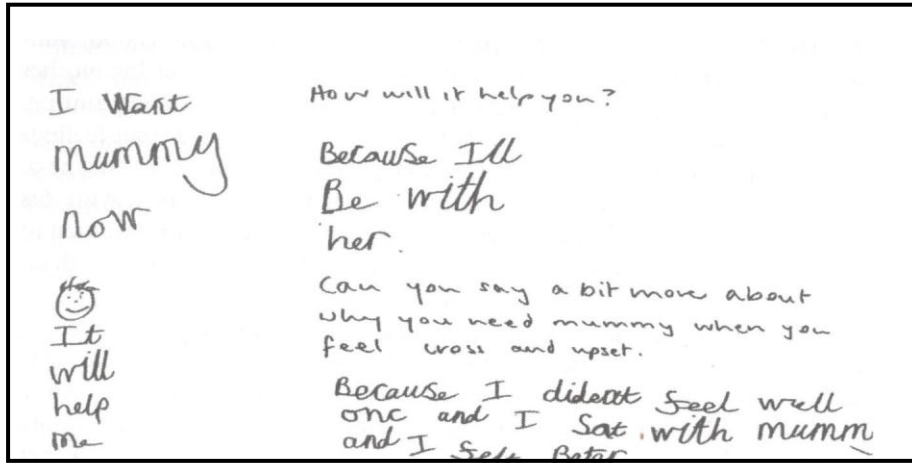 I Want
mummy
now
It
will
help
me
How will it help you?
Because Ill
Be with
her.
Can you say a bit more about
why you need mummy when you
feel cross and upset.
Because I dident feel well
onc and I Sat with mumm
and I felt Beter